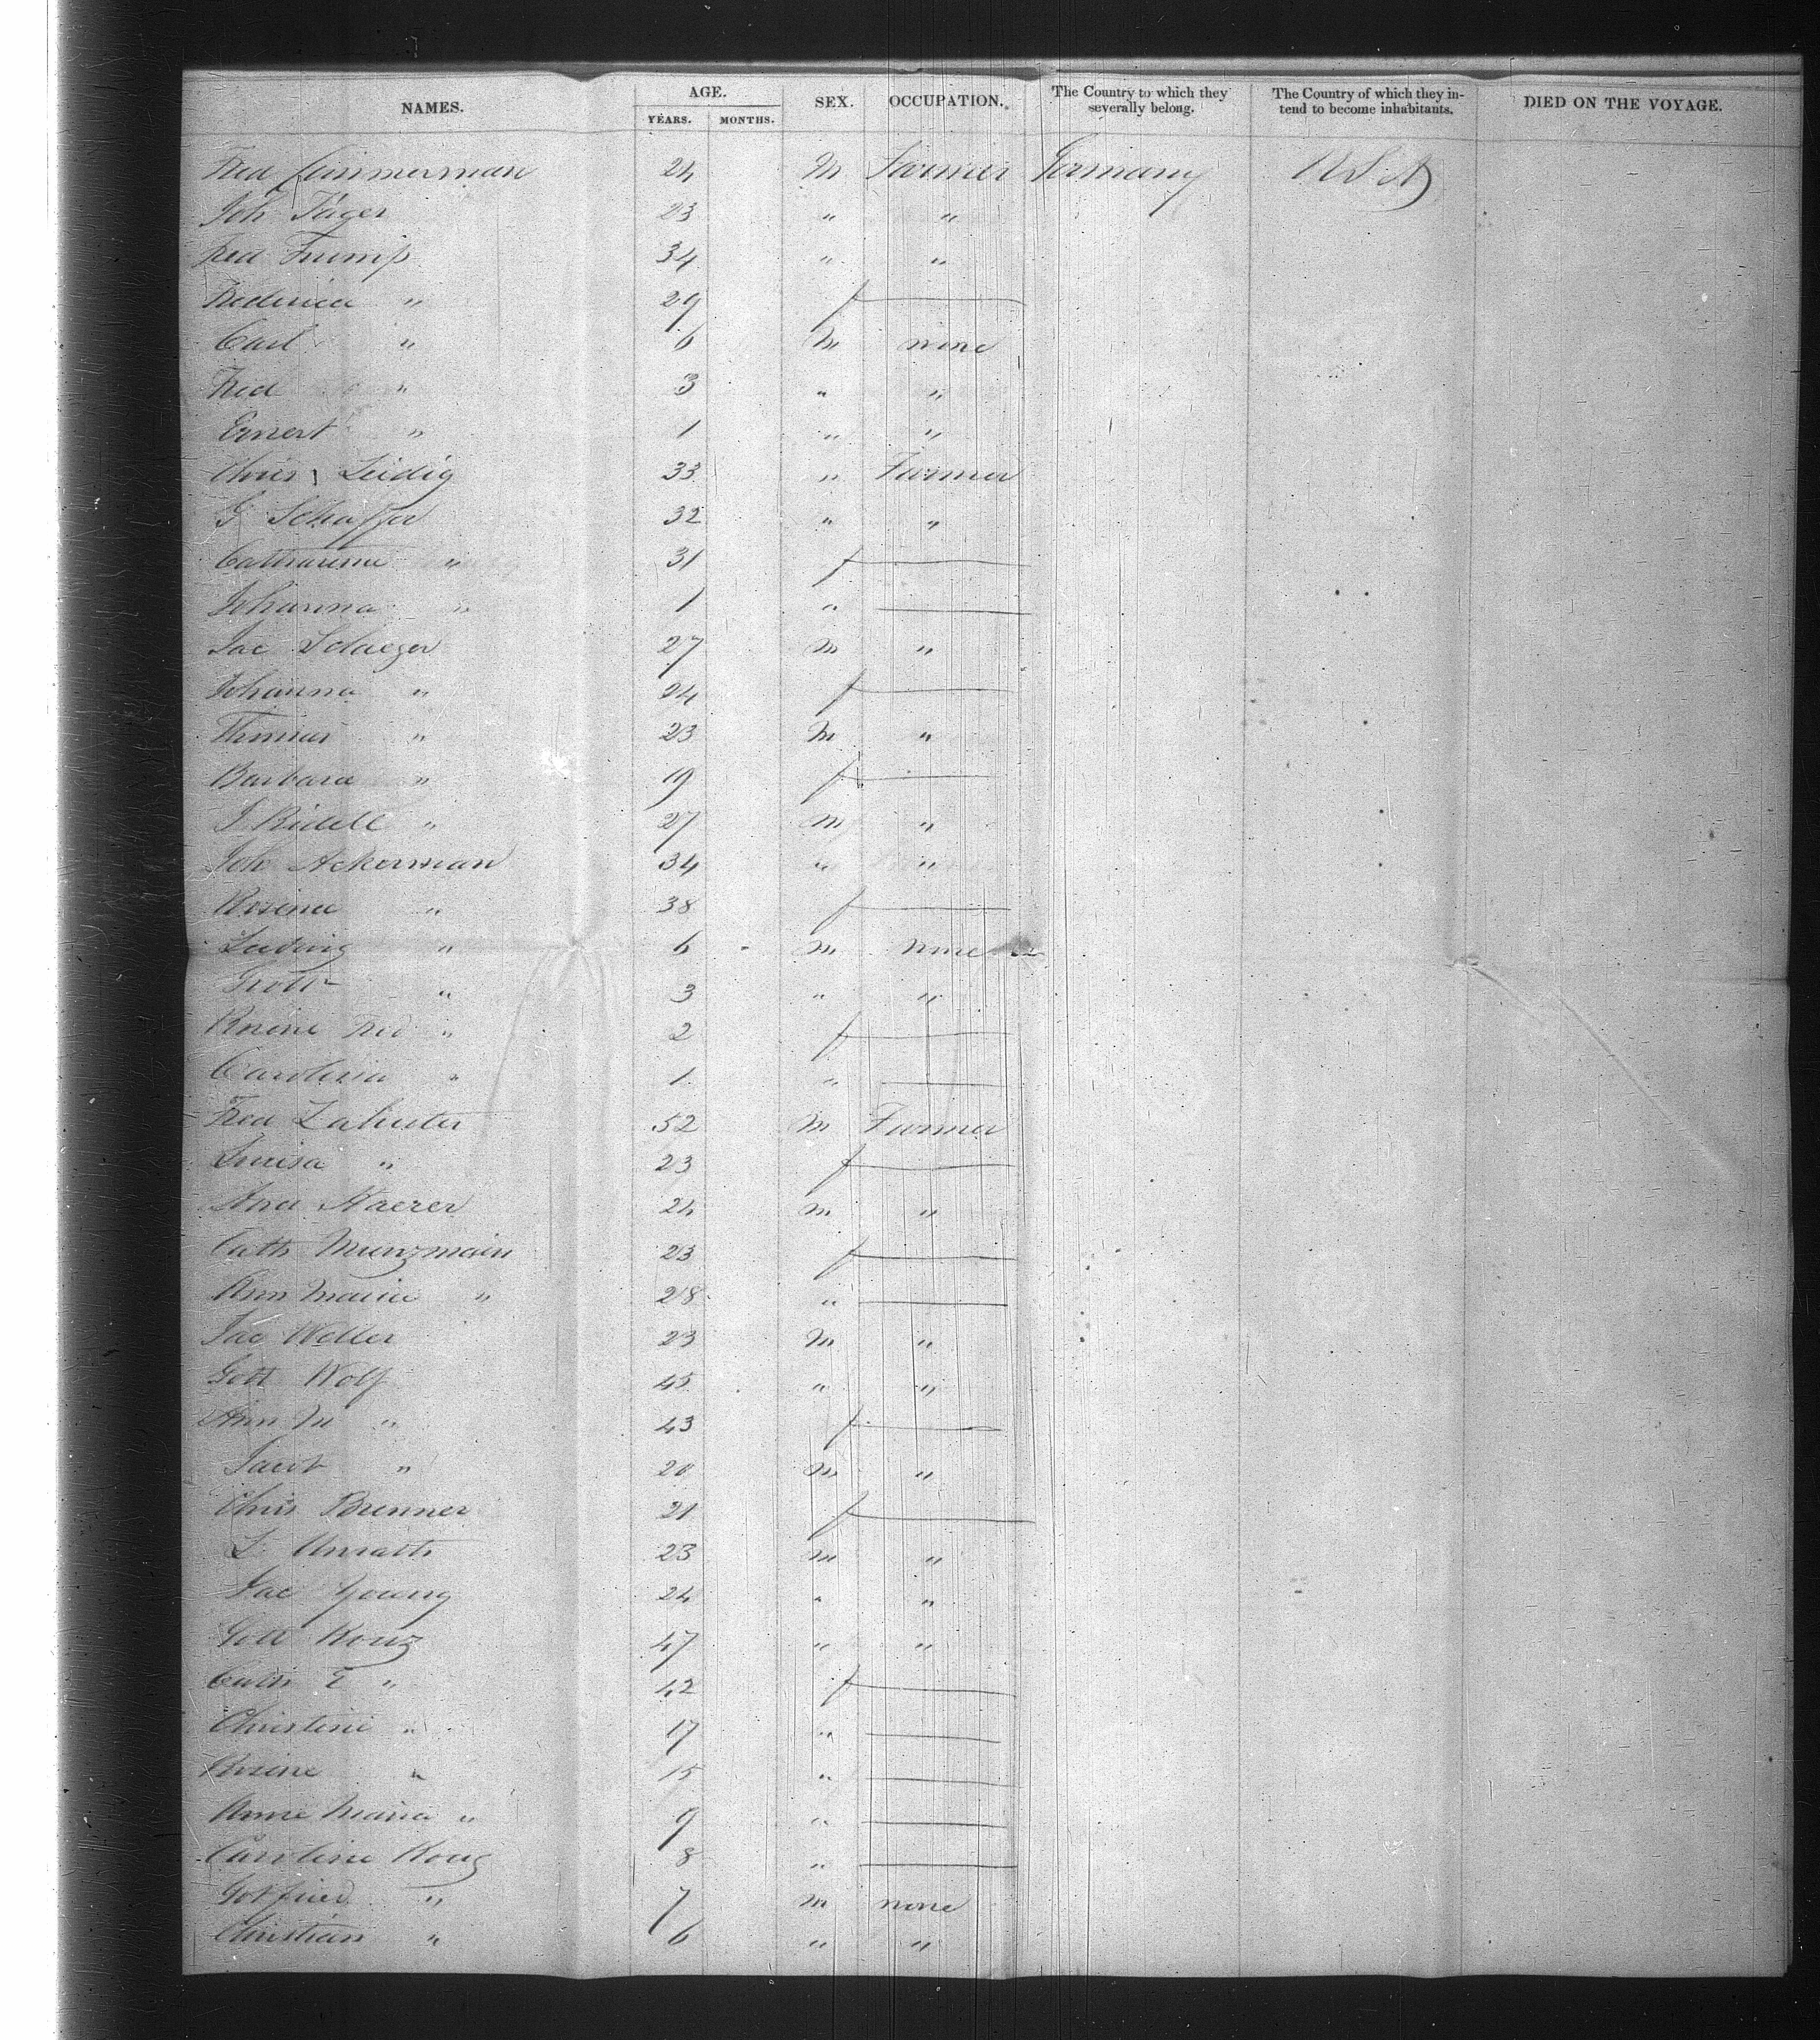 NAMES. AGE. SEX. OCCUPATION. The Country to which they severally belong. The Country of which they intend to become inhabitants. DIED ON THE VOYAGE.
YEARS. MONTHS.
Fred Zimmerman 24 m Farmer Germany USA
Joh Jäger 23 " "
Fred 34 " "
Frederica " 29 f
Carl " 6 m none
Fred " 3 " "
Ernest " 1 " "
Chris Leidig 33 " Farmer
G Schaffer 32 " "
Catharine " 31 f
Johanna " 1 "
Jac 27 m "
Johanna " 24 f
Thomas " 23 m "
Barbara " 19 f
J " 27 m "
Joh Ackerman 34 " "
Rosina " 38 f
Ludwig " 6 m none
" 3 " "
Rosine Fred " 2 f
Carolina " 1 "
Fred 52 m Farmer
Louisa " 23 f
24 m "
Cath Munzmain 23 f
Ann Maria " 28 "
Jac Weller 23 m "
Gott Wolf 45 " "
Ann M " 43 f
Jacob " 20 m "
Chris Brenner 21 f
L Unrath 23 m "
Jac Young 24 " "
Gott Konz 47 " "
Cath E " 42 f
Christine " 17 "
Rosine " 15 "
Anne Maria " 9 "
Caroline Konz 8 "
Gotfried " 7 m none
Christian " 6 " "